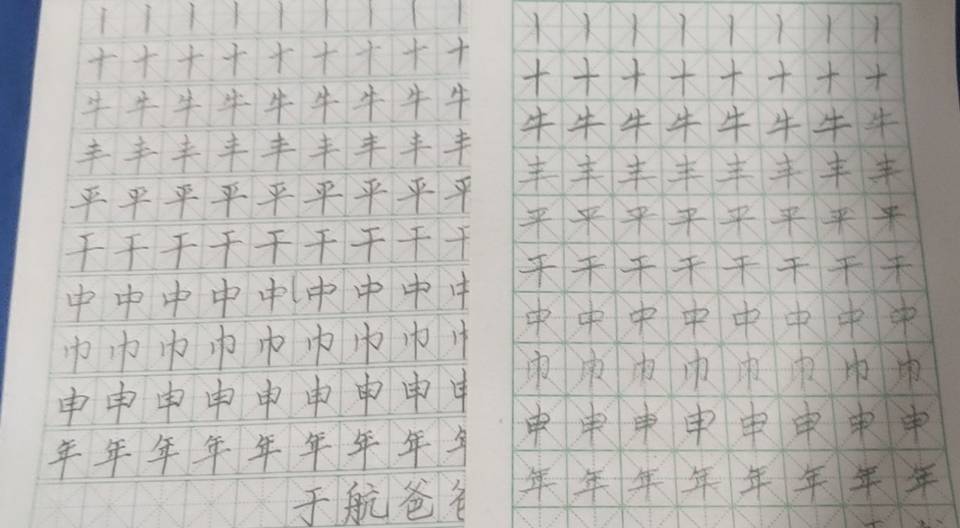 丨丨丨丨丨丨丨丨丨
十十十十十十十十十
牛牛牛牛牛牛牛牛牛
丰丰丰丰丰丰丰丰丰
平平平平平平平平平
干干干干干干干干干
中中中中中中中中中
巾巾巾巾巾巾巾巾巾
申申申申申申申申申
年年年年年年年年年
于航爸爸
丨丨丨丨丨丨丨丨
十十十十十十十十
牛牛牛牛牛牛牛牛
丰丰丰丰丰丰丰丰
平平平平平平平平
干干干干干干干干
中中中中中中中中
巾巾巾巾巾巾巾巾
申申申申申申申申
年年年年年年年年